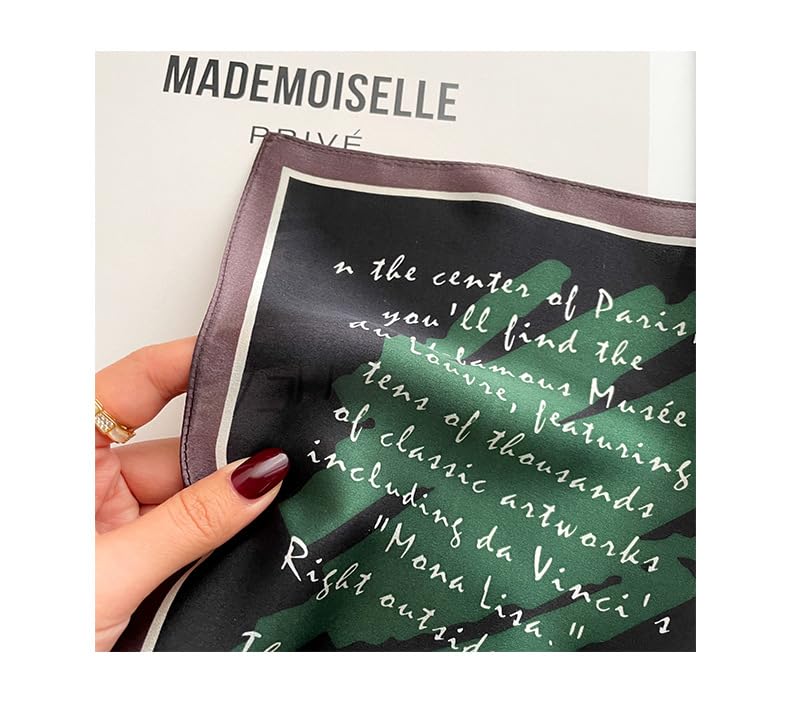 MADEMOISELLE
PRIVÉ
n the center of Paris,
you'll find the
famous Musée
au Louvre, featuring
tens of thousands
of classic artworks
including da Vinci's
"Mona Lisa."
Right outsid